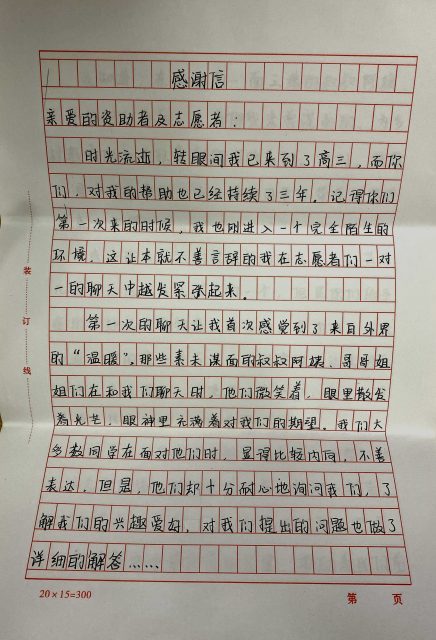 感谢信
亲爱的资助者及志愿者：
时光流逝，转眼间我已来到了高三，而你
们，对我的帮助也已经持续了三年。记得你们
第一次来的时候，我也刚进入一个完全陌生的
环境，这让本就不善言辞的我在志愿者们一对
一的聊天中越发紧张起来。
第一次的聊天让我首次感觉到了来自外界
的“温暖”，那些素未谋面的叔叔阿姨、哥哥姐
姐们在和我们聊天时，他们微笑着，眼里散发
着光芒，眼神里充满着对我们的期望。我们大
多数同学在面对他们时，显得比较内向，不善
表达，但是，他们却十分耐心地询问我们，了
解我们的兴趣爱好，对我们提出的问题也做了
详细的解答……
装
订
线
20×15=300
第 页